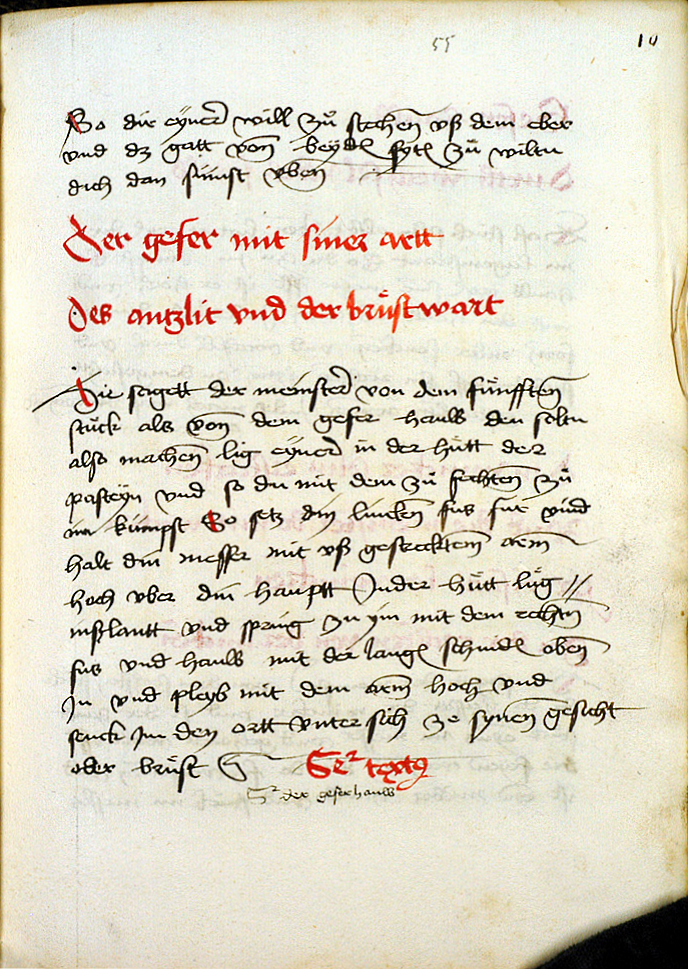 55
10
So dir eyner will zů stechen vß dem eber
vnd dz gatt von beyden sytten zů wiltu
dich dan sunst vben
Der gefer mit siner artt
Des antzlit vnd der brůst wart
Hie segett der meinster von dem fůnfften
stůck als von dem gefer hauw den soltu
also machen lig eyner in der hůtt der
pasteyn vnd so du mit dem zů fechten zů
im kumpst So setz din lincken fus fur vnd
halt din messer mit vß gestrecktem arm
hoch vber din hauptt In der hůtt lůg //
inßlantt vnd spring zu ym mit dem rechten
fus vnd hauw mit der langen schnide oben
In vnd pleyb mit dem arm hoch vnd
senck Im den ortt vnter sich ze synen gesicht
oder brůst
textus
der gefer hauw